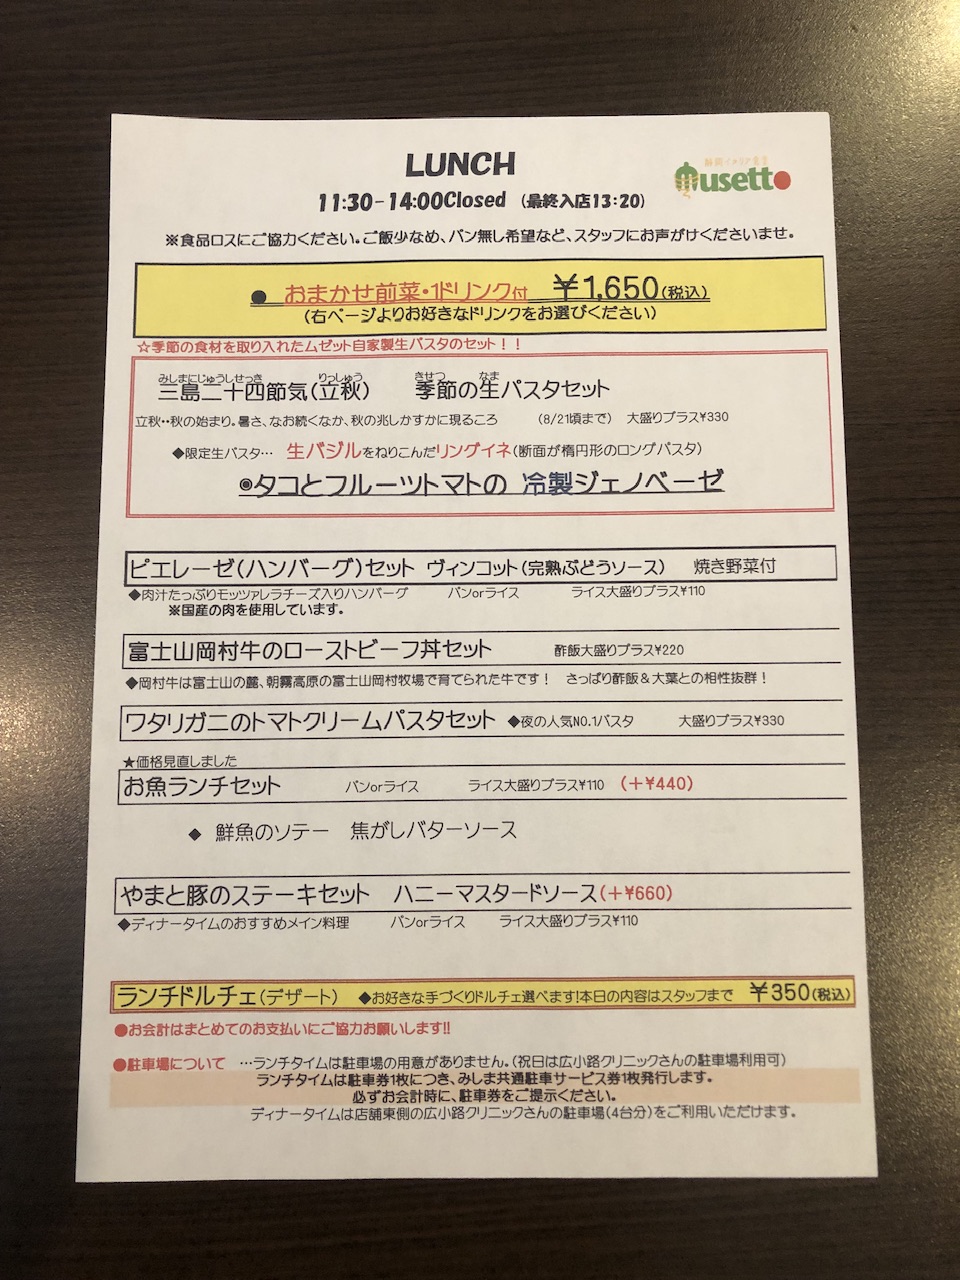 LUNCH
静岡イタリア食堂
musetto
11:30-14:00Closed (最終入店13:20)
※食品ロスにご協力ください。ご飯少なめ、パン無し希望など、スタッフにお声がけくださいませ。
● おまかせ前菜・1ドリンク付 ¥1,650(税込)
(右ページよりお好きなドリンクをお選びください)
☆季節の食材を取り入れたムゼット自家製生パスタのセット！！
みしまにじゅうしせっき りっしゅう きせつ なま
三島二十四節気(立秋) 季節の生パスタセット
立秋・・秋の始まり。暑さ、なお続くなか、秋の兆しかすかに現るころ (8/21頃まで) 大盛りプラス¥330
◆限定生パスタ… 生バジルをねりこんだリングイネ(断面が楕円形のロングパスタ)
◉タコとフルーツトマトの 冷製ジェノベーゼ
ピエレーゼ(ハンバーグ)セット ヴィンコット(完熟ぶどうソース) 焼き野菜付
◆肉汁たっぷりモッツァレラチーズ入りハンバーグ パンorライス ライス大盛りプラス¥110
※国産の肉を使用しています。
富士山岡村牛のローストビーフ丼セット 酢飯大盛りプラス¥220
◆岡村牛は富士山の麓、朝霧高原の富士山岡村牧場で育てられた牛です！ さっぱり酢飯＆大葉との相性抜群！
ワタリガニのトマトクリームパスタセット ◆夜の人気NO.1パスタ 大盛りプラス¥330
★価格見直しました
お魚ランチセット パンorライス ライス大盛りプラス¥110 (＋¥440)
◆ 鮮魚のソテー 焦がしバターソース
やまと豚のステーキセット ハニーマスタードソース(＋¥660)
◆ディナータイムのおすすめメイン料理 パンorライス ライス大盛りプラス¥110
ランチドルチェ(デザート) ◆お好きな手づくりドルチェ選べます!本日の内容はスタッフまで ¥350(税込)
●お会計はまとめてのお支払いにご協力お願いします!!
●駐車場について …ランチタイムは駐車場の用意がありません。(祝日は広小路クリニックさんの駐車場利用可)
ランチタイムは駐車券1枚につき、みしま共通駐車サービス券1枚発行します。
必ずお会計時に、駐車券をご提示ください。
ディナータイムは店舗東側の広小路クリニックさんの駐車場(4台分)をご利用いただけます。